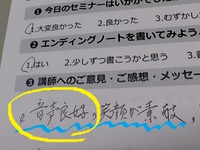 ❶今日のセミナーはいかがで
①.大変良かった 2.良かった 3.むずかし
❷エンディングノートを書いてみよう
①.はい 2.少しずつ書こうかと思う
❸講師へのご意見・ご感想・メッセー
音声良好。笑顔が素敵